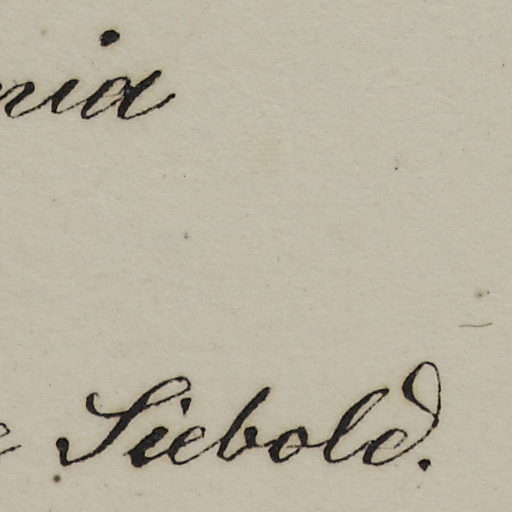 nia
e Siebold.